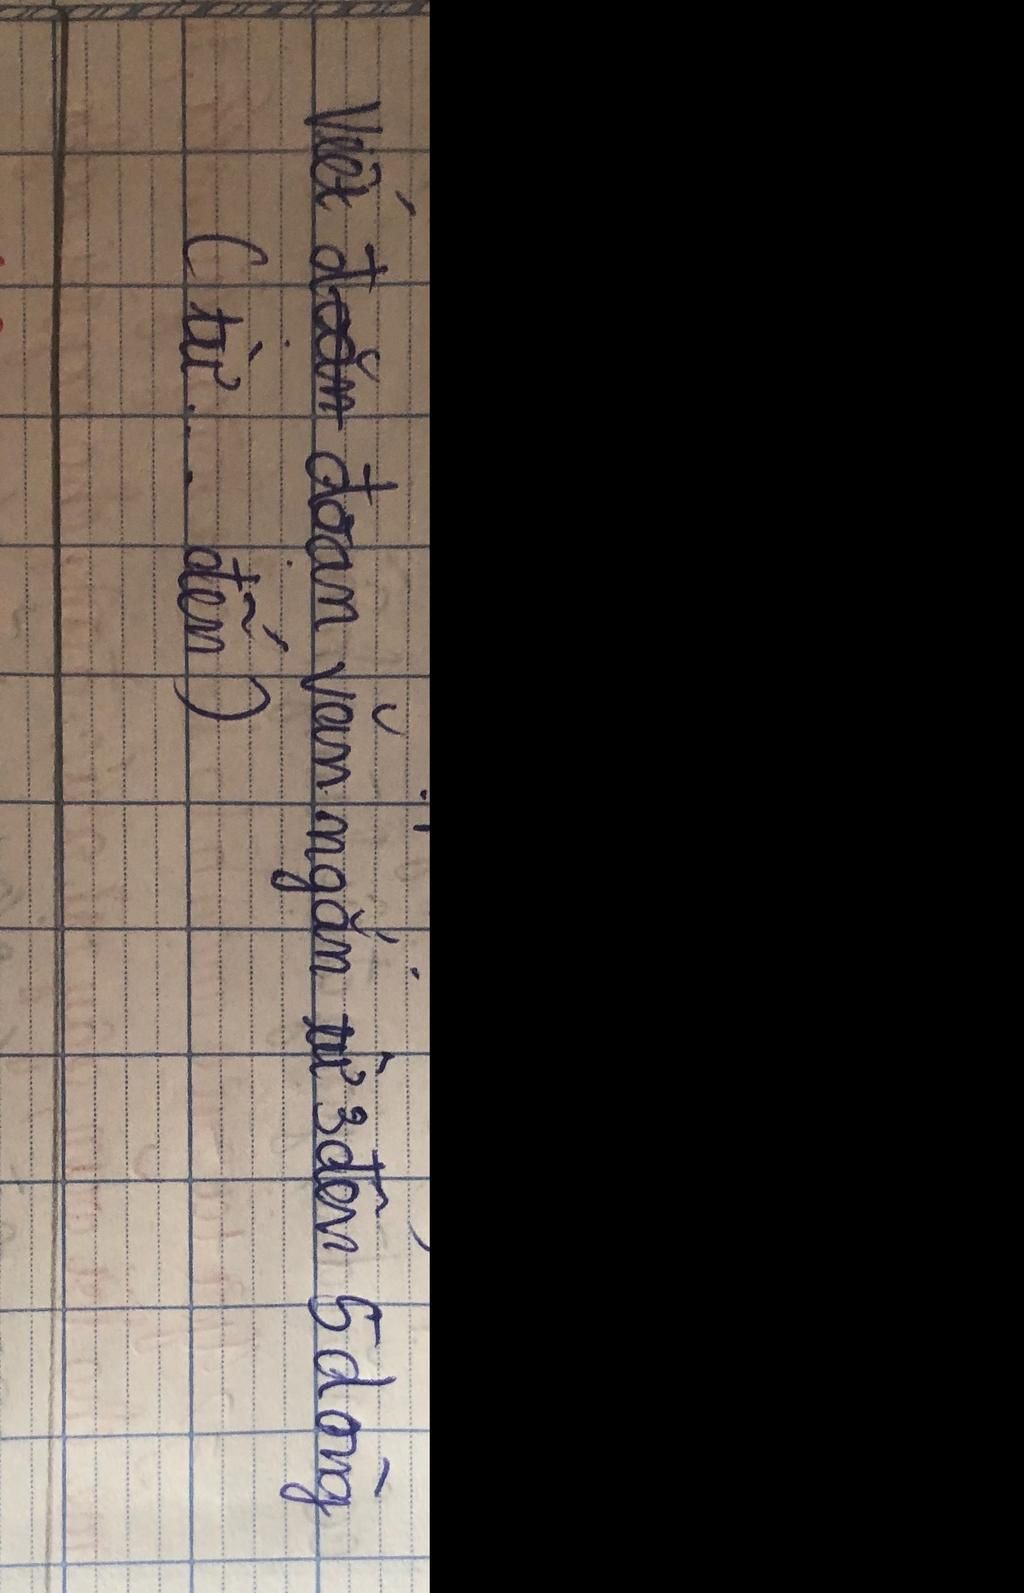 Viết đoạn văn ngắn từ 3 đến 5 dòng
(từ... đến)